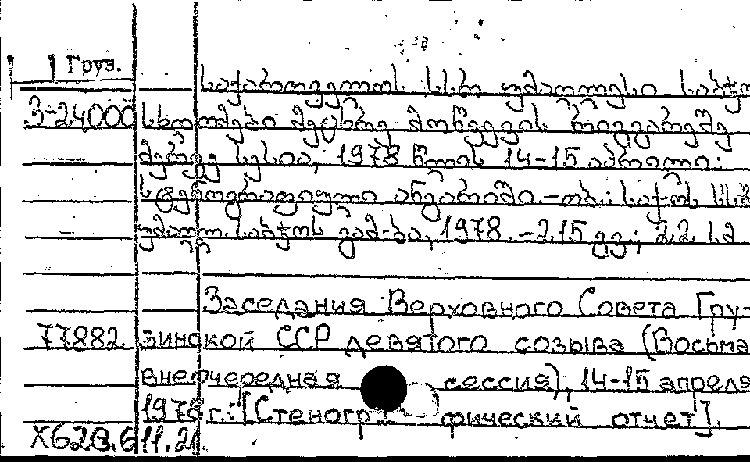 Груз.
საქართველოს სსრ უმაღლესი საბჭო
3-24000 სხდომები მეცხრე მოწვევის რიგგარეშე
მერვე სესია, 1978 წლის 14-15 აპრილი:
სტენოგრაფიული ანგარიში.-თბ.: საქ. სსრ
უმაღლ. საბჭოს გამ-ბა, 1978.-215 გვ.; 22
Заседания Верховного Совета Гру-
77882 зинской ССР девятого созыва (Восьма
внеочередная сессия), 14-15 апреля
1978г.: [Стенографический отчет].
Х628.611.21